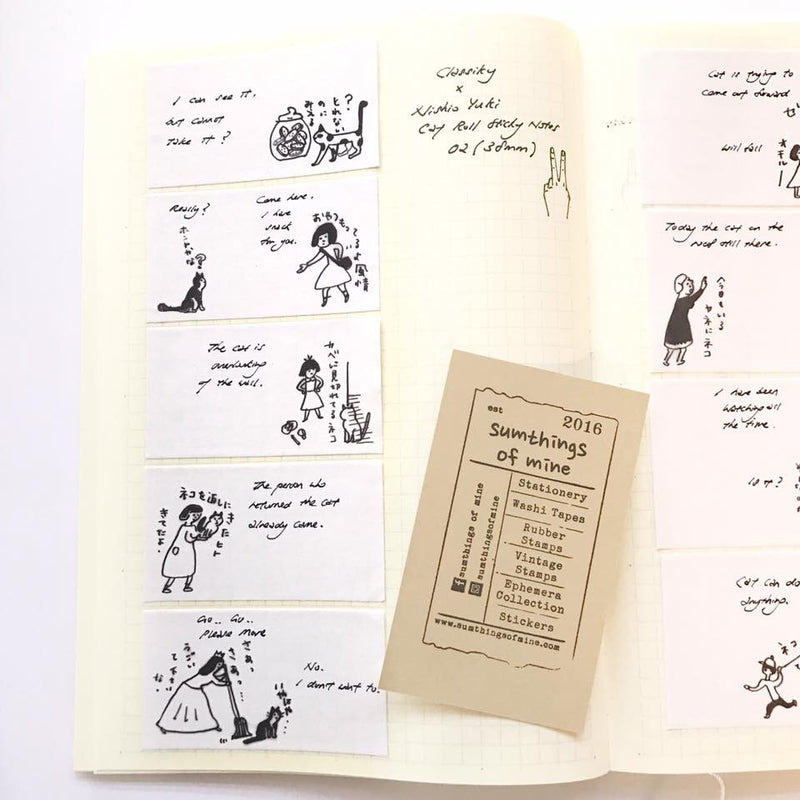 I can see it,
but cannot
take it?
?
とれない
のに
みえる
Really?
ホントかな?
Come here.
I have
snack
for you.
おやつもってるよ
風情
The cat is
overlooking
of the wall.
カベに見切れてるネコ
The person who
returned the cat
already came.
ネコを返しにきたヒト
きてたよ.
Go.. Go..
please move
さあっ
さあっ...
うごい
て下さい
な.
No.
I don't want to.
Classiky
x
Nishio Yuki
Cat Roll Sticky Notes
02 (38mm)
est 2016
sumthings
of mine
Stationery
Washi Tapes
Rubber
Stamps
Vintage
Stamps
Ephemera
Collection
Stickers
sumthings of mine
sumthingsofmine
www.sumthingsofmine.com
Cat is trying to
come out forward
will fall
オチルー
Today the cat on the
roof still there.
今日もいる
ヤネにネコ
I have been
watching all
the time.
is it?
Cat can do
anything.
ネコ